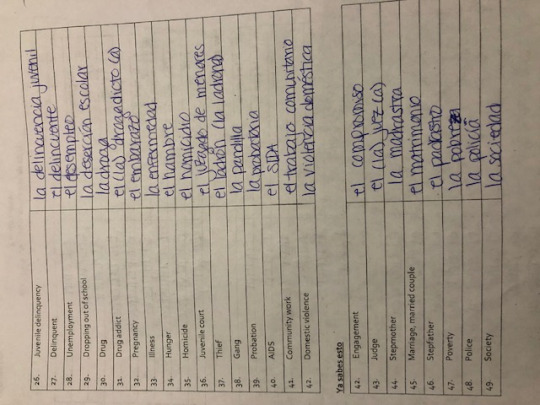 26. Juvenile delinquency la delincuencia juvenil
27. Delinquent el delincuente
28. Unemployment el desempleo
29. Dropping out of school la deserción escolar
30. Drug la droga
31. Drug addict el (la) drogadicto (a)
32. Pregnancy el embarazo
33. Illness la enfermedad
34. Hunger el hambre
35. Homicide el homicidio
36. Juvenile court el juzgado de menores
37. Thief el ladrón (la ladrona)
38. Gang la pandilla
39. Probation la probatoria
40. AIDS el SIDA
41. Community work el trabajo comunitario
42. Domestic violence la violencia doméstica
Ya sabes esto
42. Engagement el compromiso
43. Judge el (la) juez (a)
44. Stepmother la madrastra
45. Marriage, married couple el matrimonio
46. Stepfather el padrastro
47. Poverty la pobreza
48. Police la policía
49. Society la sociedad